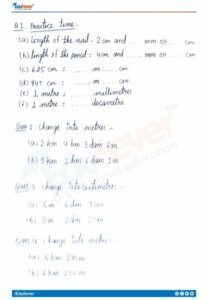 Edufever
Q.1. Practice Time -
(a) Length of the nail - 2 cm and ..... mm or ..... cm
(b) Length of the pencil = 4 cm and .... mm or .... cm
(c) 625 cm = ...... m ...... cm.
(d) 847 cm = ...... m ...... cm.
(e) 1 metre = ........ millimetres
(f) 1 metre = ........ decametre.
Ques 2. Change into metres -
(a) 2 km 4 hm 3 dam 6 m
(b) 5 km 2 hm 6 dam 1 m
Ques 3. Change into centimetres -
(a) 6 m 6 dm 7 cm
(b) 7 m 2 dm 1 cm
Ques 4. Change into metres -
(b) 6 km 250 m
/Edufever